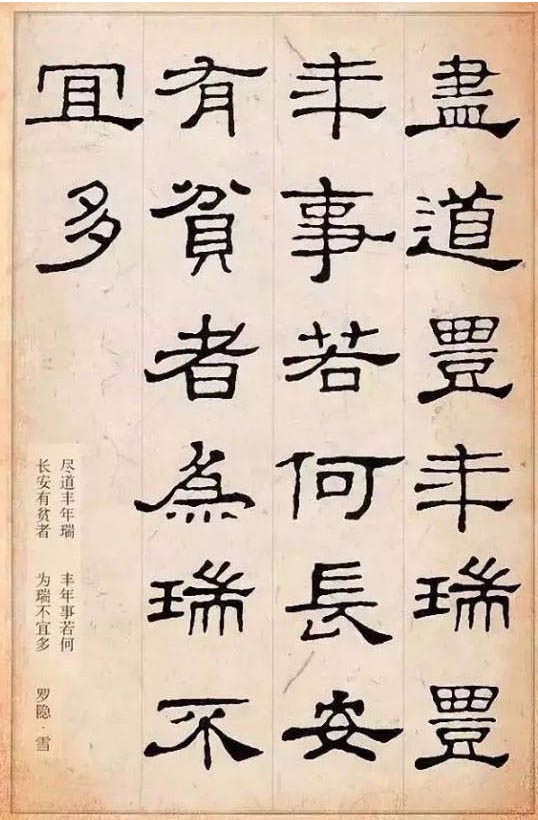 盡道豐年瑞豐
年事若何長安
有貧者為瑞不
宜多
尽道丰年瑞 丰年事若何
长安有贫者 为瑞不宜多 罗隐·雪